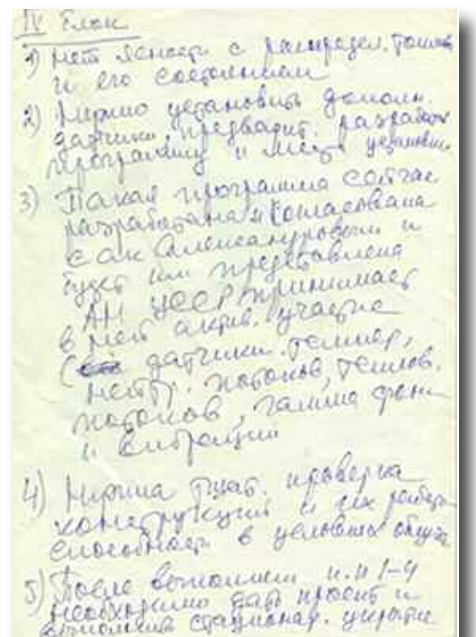 IV Блок
1) Нет ясности с распредел. топлива
и его состоянием
2) Нужно установить дополн.
датчики, предварит. разработав
программу и места установки
3) Такая программа сейчас
разработана и согласована
с ак Александровым и
будет им представлена
АН УССР принимает
в ней актив. участие
( датчики темпер,
нейтр. потоков, теплов.
потоков, гамма фон
и вибрации
4) Нужна тщат. проверка
конструкций и их работо-
способность в условиях
5) После выполнен п.п 1-4
необходимо дать проект и
выполнить стационар. укрытие